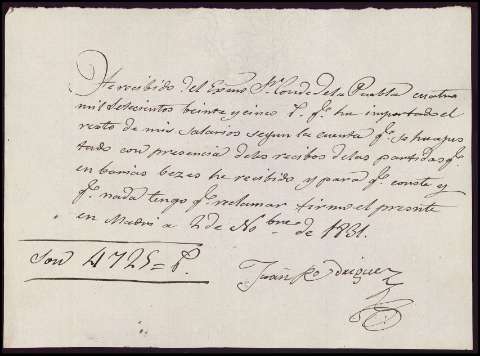 He recibido del Exmo Sr. Conde de la Puebla cuatro
mil setecientos beinte y cinco r. qe. ha importado el
resto de mis salarios segun la cuenta qe. se ha ajus
tado con presencia de los recibos de las partidas qe.
en barias bezes he recibido y para qe. conste y
qe. nada tengo qe. reclamar firmo el presente
en Madrid a 2 de Nobre. de 1831.
Son 4725=r.
Juan Rodriguez